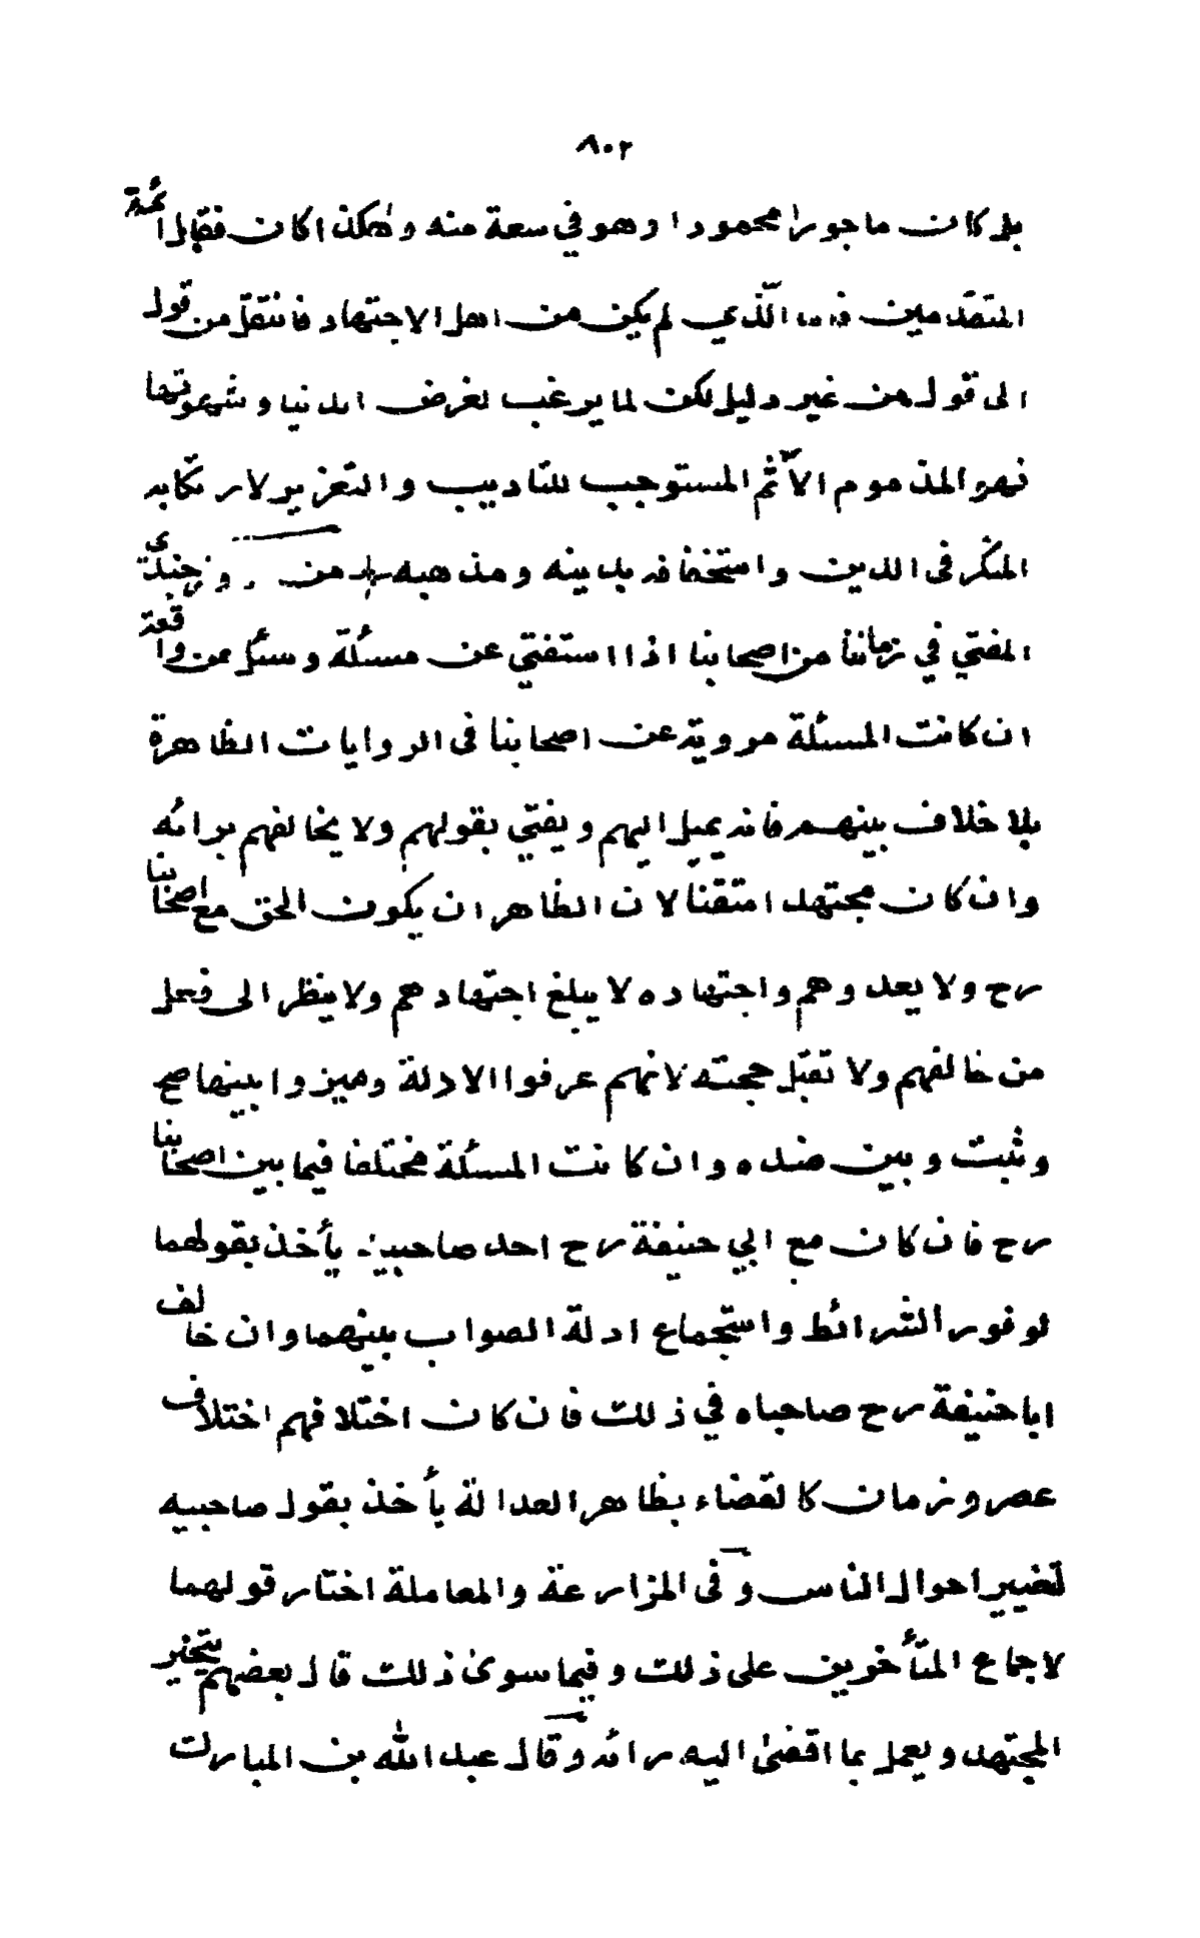 ٨٠٢
بل كان ماجورا محمودا وهو في سعة منه وهكذا كان فقابل ائمة
المتقدمين فاما الّذي لم يكن من اهل الاجتهاد فانتقل من قول
الى قول من غير دليل لكن لما يرغب لغرض الدنيا وشهوتها
فهو المذموم الآثم المستوجب للتاديب والتعزير لارتكابه
المنكر فى الدين واستخفافه بدينه ومذهبه من
المفتي في زماننا من اصحابنا اذا استفتي عن مسئلة وسئل عن واقعة
ان كانت المسئلة مروية عن اصحابنا فى الروايات الظاهرة
بلا خلاف بينهم فانه يميل اليهم ويفتي بقولهم ولا يخالفهم برائه
وان كان مجتهدا متقنا لان الظاهر ان يكون الحق مع اصحابنا
رح ولا يعدوهم واجتهاده لا يبلغ اجتهادهم ولا ينظر الى فعل
من خالفهم ولا تقبل حجته لانهم عرفوا الادلة وميزوا بينها صح
وثبت وبين ضده وان كانت المسئلة مختلفا فيما بين اصحابنا
رح فان كان مع ابي حنيفة رح احد صاحبيه يأخذ بقولهما
لوفور الشرائط واستجماع ادلة الصواب بينهما وان خالف
ابا حنيفة رح صاحباه في ذلك فان كان اختلافهم اختلاف
عصر وزمان كالقضاء بظاهر العدالة يأخذ بقول صاحبيه
لتغيير احوال الناس وفى المزارعة والمعاملة اختار قولهما
لاجماع المتأخرين على ذلك وفيما سوى ذلك قال بعضهم يتخير
المجتهد ويعمل بما افضى اليه رائه وقال عبد الله بن المبارك